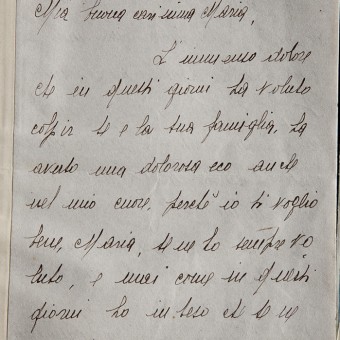 Mia buona carissima Maria,
L'immenso dolore
che in questi giorni ha voluto
colpir te e la tua famiglia, ha
avuto una dolorosa eco anche
nel mio cuore, perchè io ti voglio
bene, Maria, te ne ho sempre vo
luto, e mai come in questi
giorni ho inteso che te ne